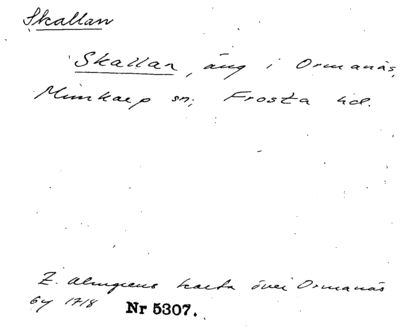 Skallan
Skallan, äng i Ormanäs,
Munkarp sn; Frosta hd.
Z. Almgrens karta över Ormanäs
by 1718 Nr 5307.